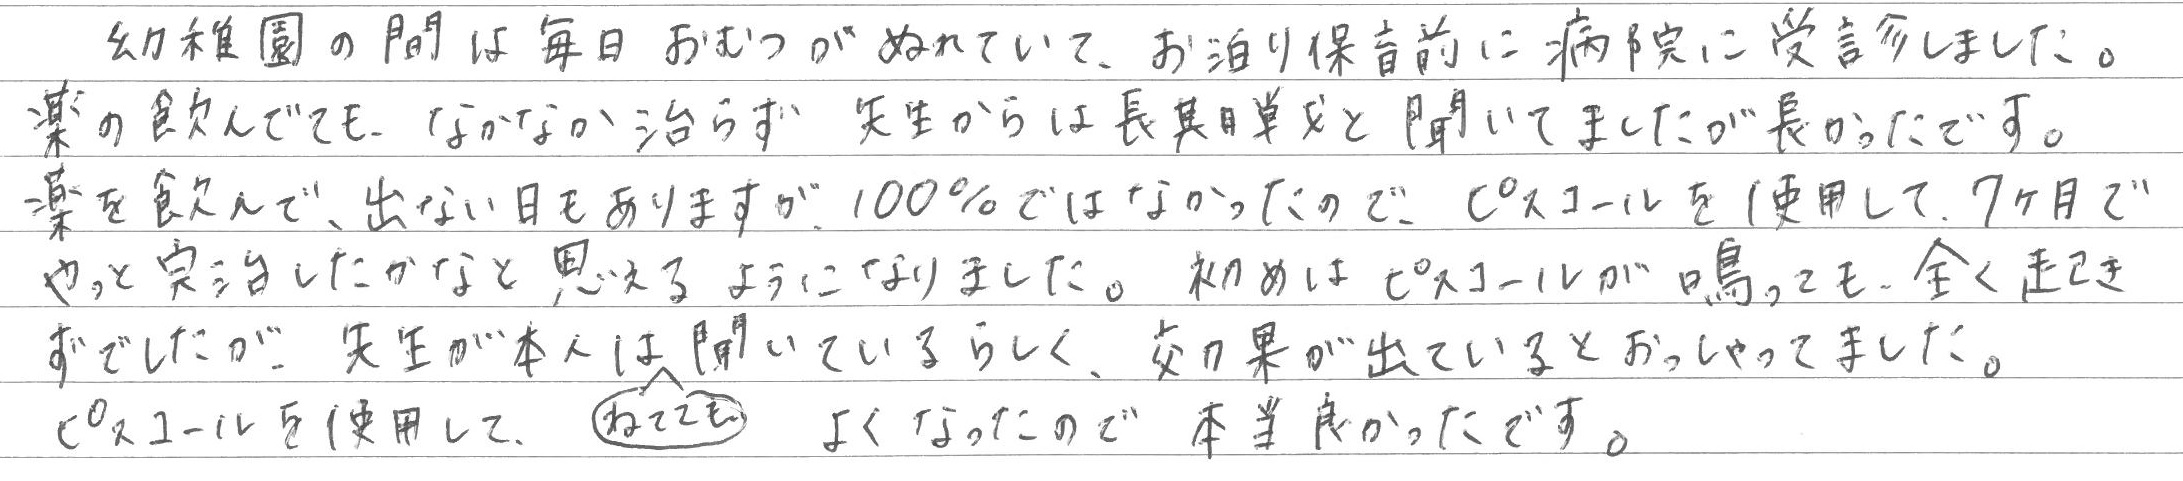 幼稚園の間は毎日おむつがぬれていて、お泊り保育前に病院に受診しました。
薬の飲んでても、なかなか治らず 先生からは長期戦と聞いてましたが長かったです。
薬を飲んで、出ない日もありますが、100%ではなかったので、ピスコールを使用して、7ヶ月で
やっと完治したかなと思えるようになりました。初めはピスコールが鳴っても、全く起き
ずでしたが、先生が本人は聞いているらしく、効果が出ているとおっしゃってました。
ねてても
ピスコールを使用して、 よくなったので本当良かったです。